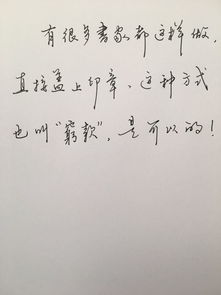 有很多書家都这样做，
直接盖上印章、这种方式
也叫“窮款”，是可以的！